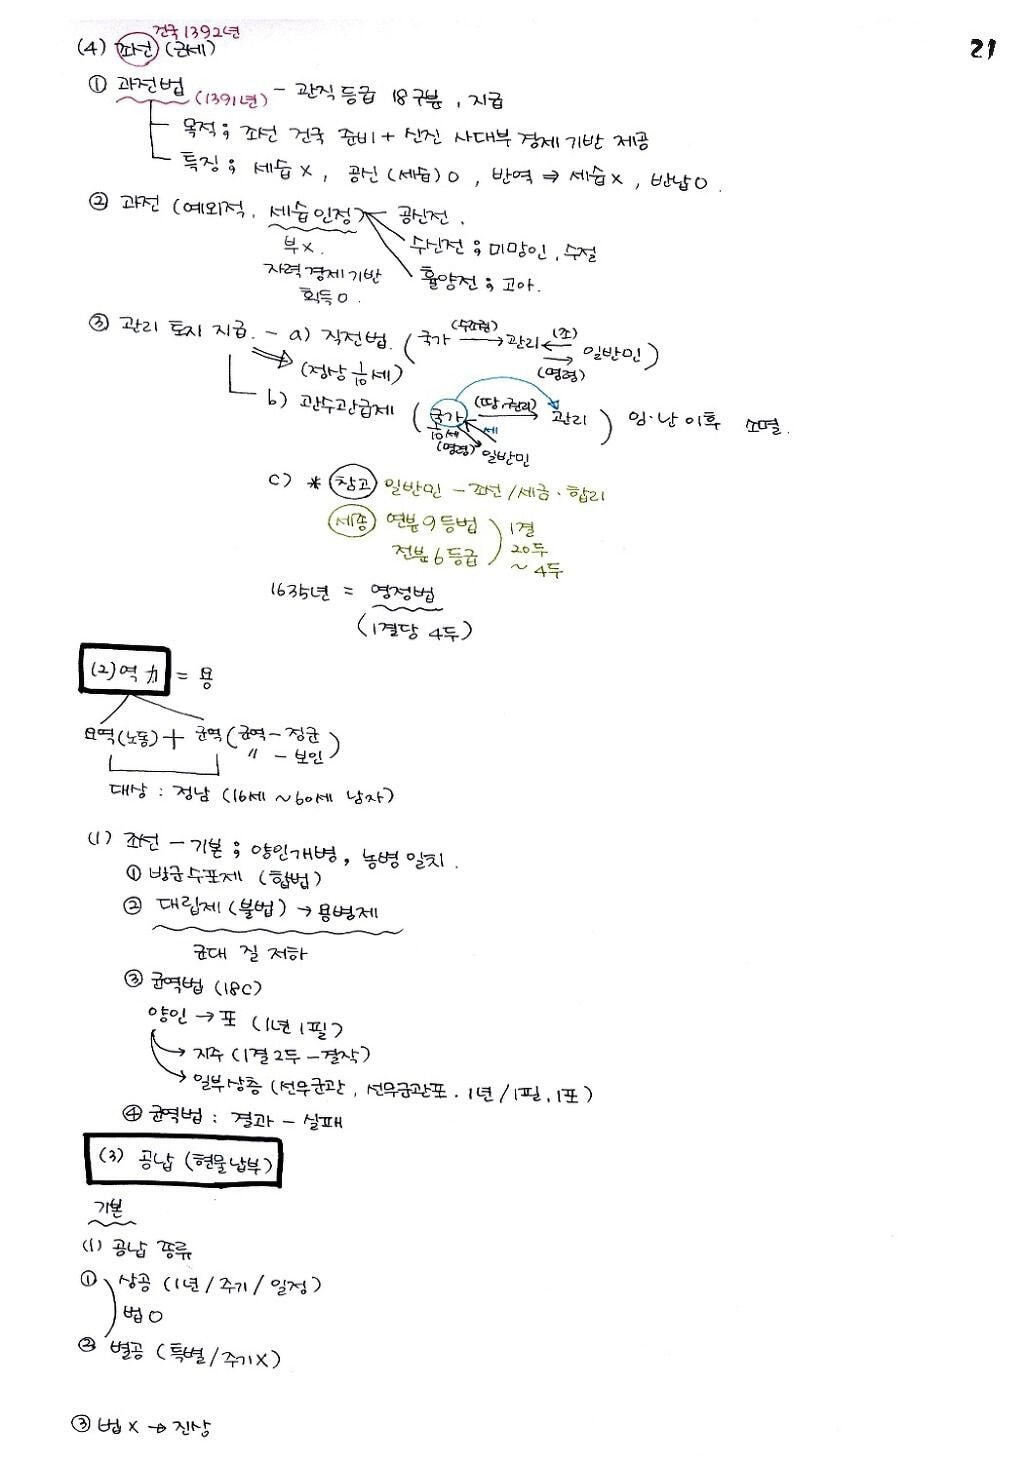 21
건국 1392년
(4) 조선 (조세)
① 과전법 (1391년) - 관직등급 18구분, 지급
목적; 조선 건국 준비 + 신진 사대부 경제기반 제공
특징; 세습 X, 공신(세습)O, 반역 ⇒ 세습X, 반납O.
② 과전 (예외적. 세습인정) 공신전.
부X. 수신전; 미망인, 수절
자력 경제기반 휼양전; 고아.
획득 O.
③ 관리 토지 지급. - a) 직전법. (국가 (수조권) → 관리 ← (조) 일반민)
(명령)
(정상 1/10 세)
b) 관수관급제 (국가 (땅, 권리) → 관리) 임·난 이후 소멸.
1/10세 세
(명령) 일반민
c) * 참고 일반민 - 조선/세금·합리
세종 연분9등법 1결
전분6등급 20두
~4두
1635년 = 영정법
(1결당 4두)
(2) 역 力 = 용
요역(노동) + 군역 (군역 - 정군
〃 - 보인)
대상 : 정남 (16세 ~ 60세 남자)
(1) 조선 - 기본; 양인개병, 농병일치.
① 방군수포제 (합법)
② 대립제 (불법) → 용병제
군대 질 저하
③ 균역법 (18C)
양인 → 포 (1년 1필)
→ 지주 (1결 2두 - 결작)
→ 일부상층 (선무군관, 선무군관포. 1년/1필, 1포)
④ 균역법 : 결과 - 실패
(3) 공납 (현물납부)
기본
(1) 공납 종류
① 상공 (1년/주기/일정)
법O
② 별공 (특별/주기X)
③ 법X → 진상